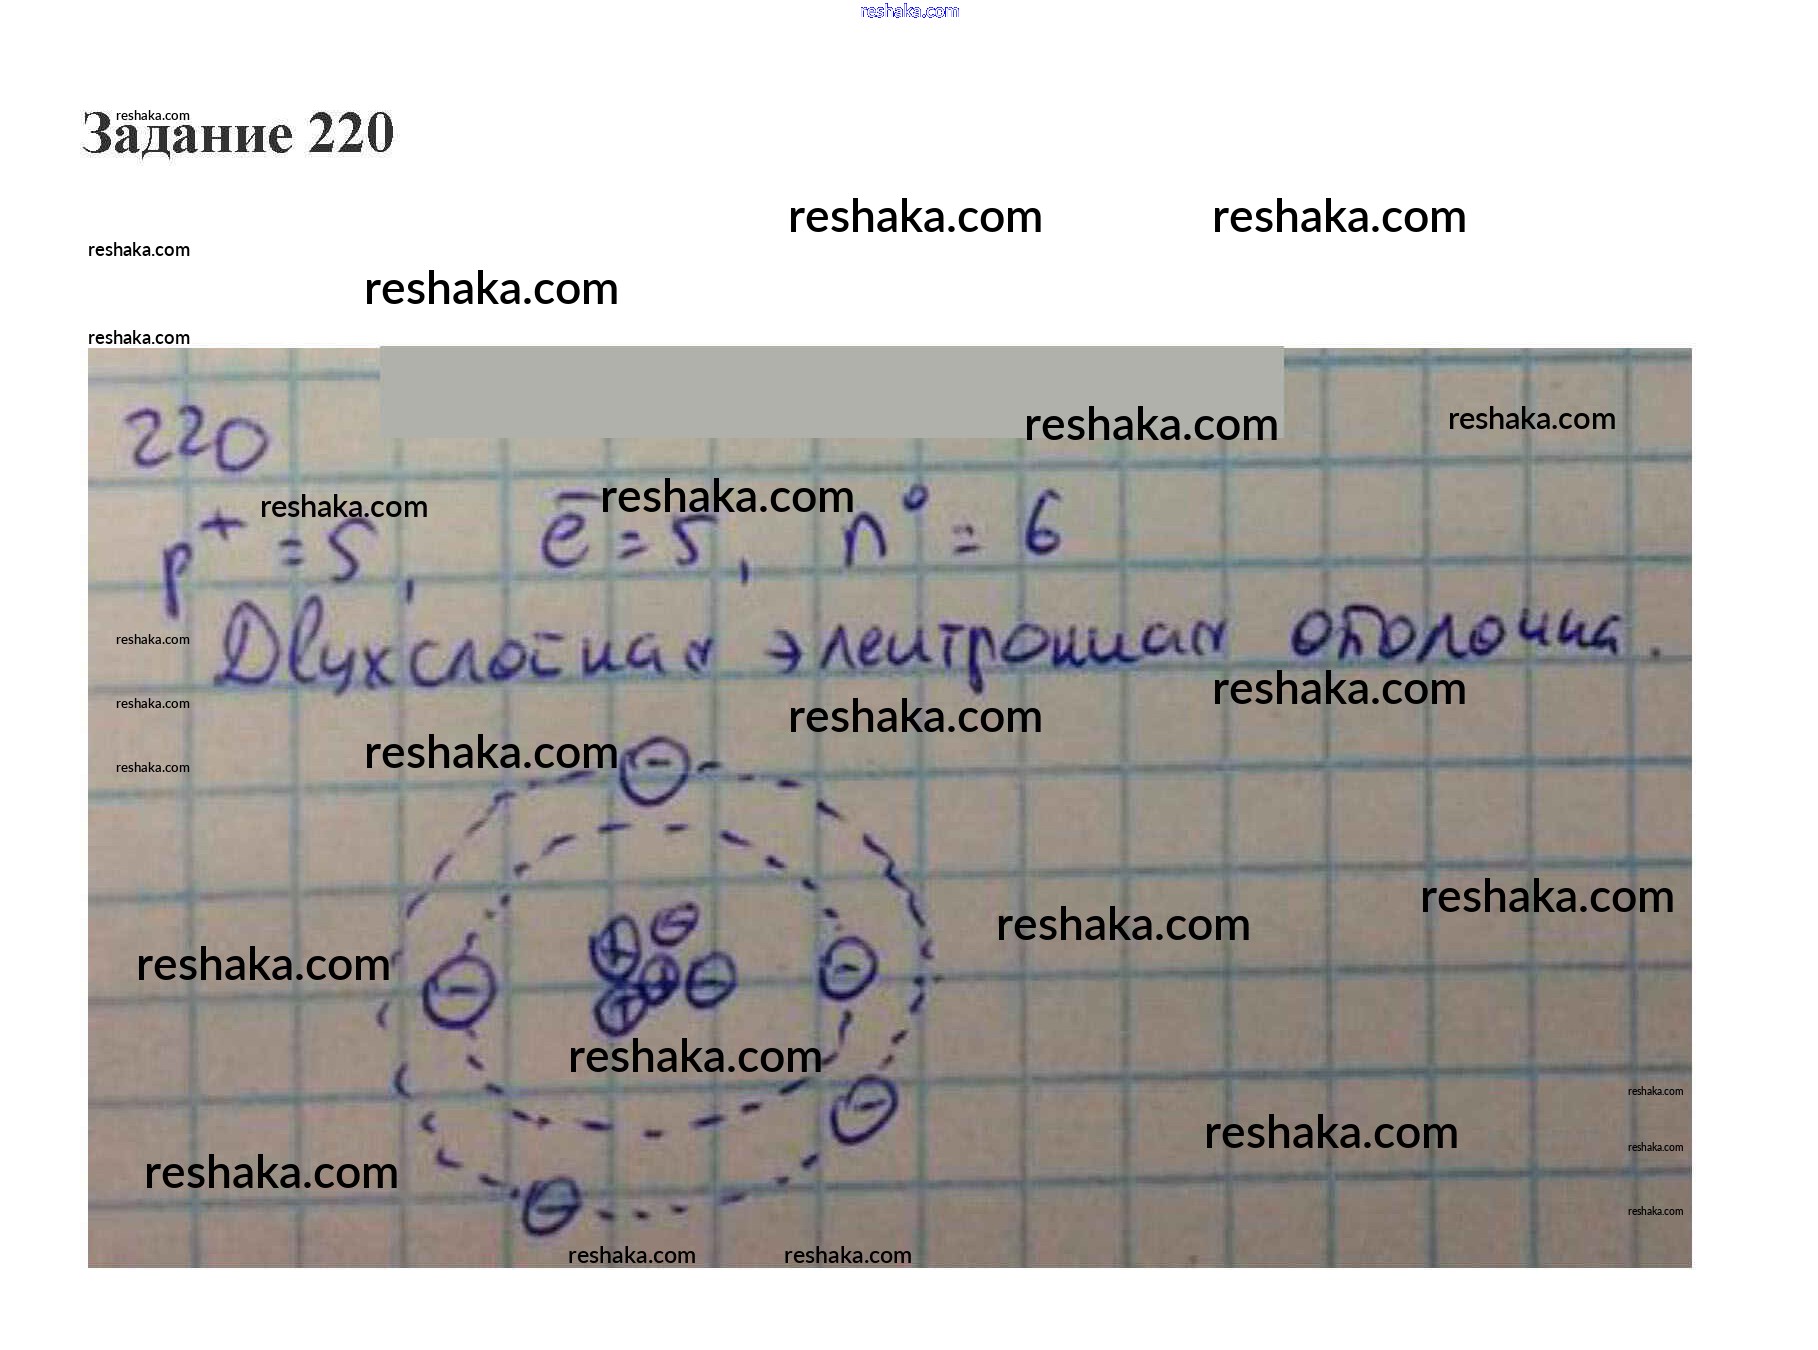 reshaka.com
reshaka.com
Задание 220
reshaka.com reshaka.com
reshaka.com
reshaka.com
reshaka.com
220 reshaka.com reshaka.com
reshaka.com reshaka.com
p+ = 5, e̅ = 5, n⁰ = 6
reshaka.com
Двухслойная электронная оболочка.
reshaka.com
reshaka.com reshaka.com
reshaka.com
reshaka.com
reshaka.com
reshaka.com
reshaka.com
reshaka.com
reshaka.com
reshaka.com
reshaka.com
reshaka.com
reshaka.com
reshaka.com
reshaka.com reshaka.com